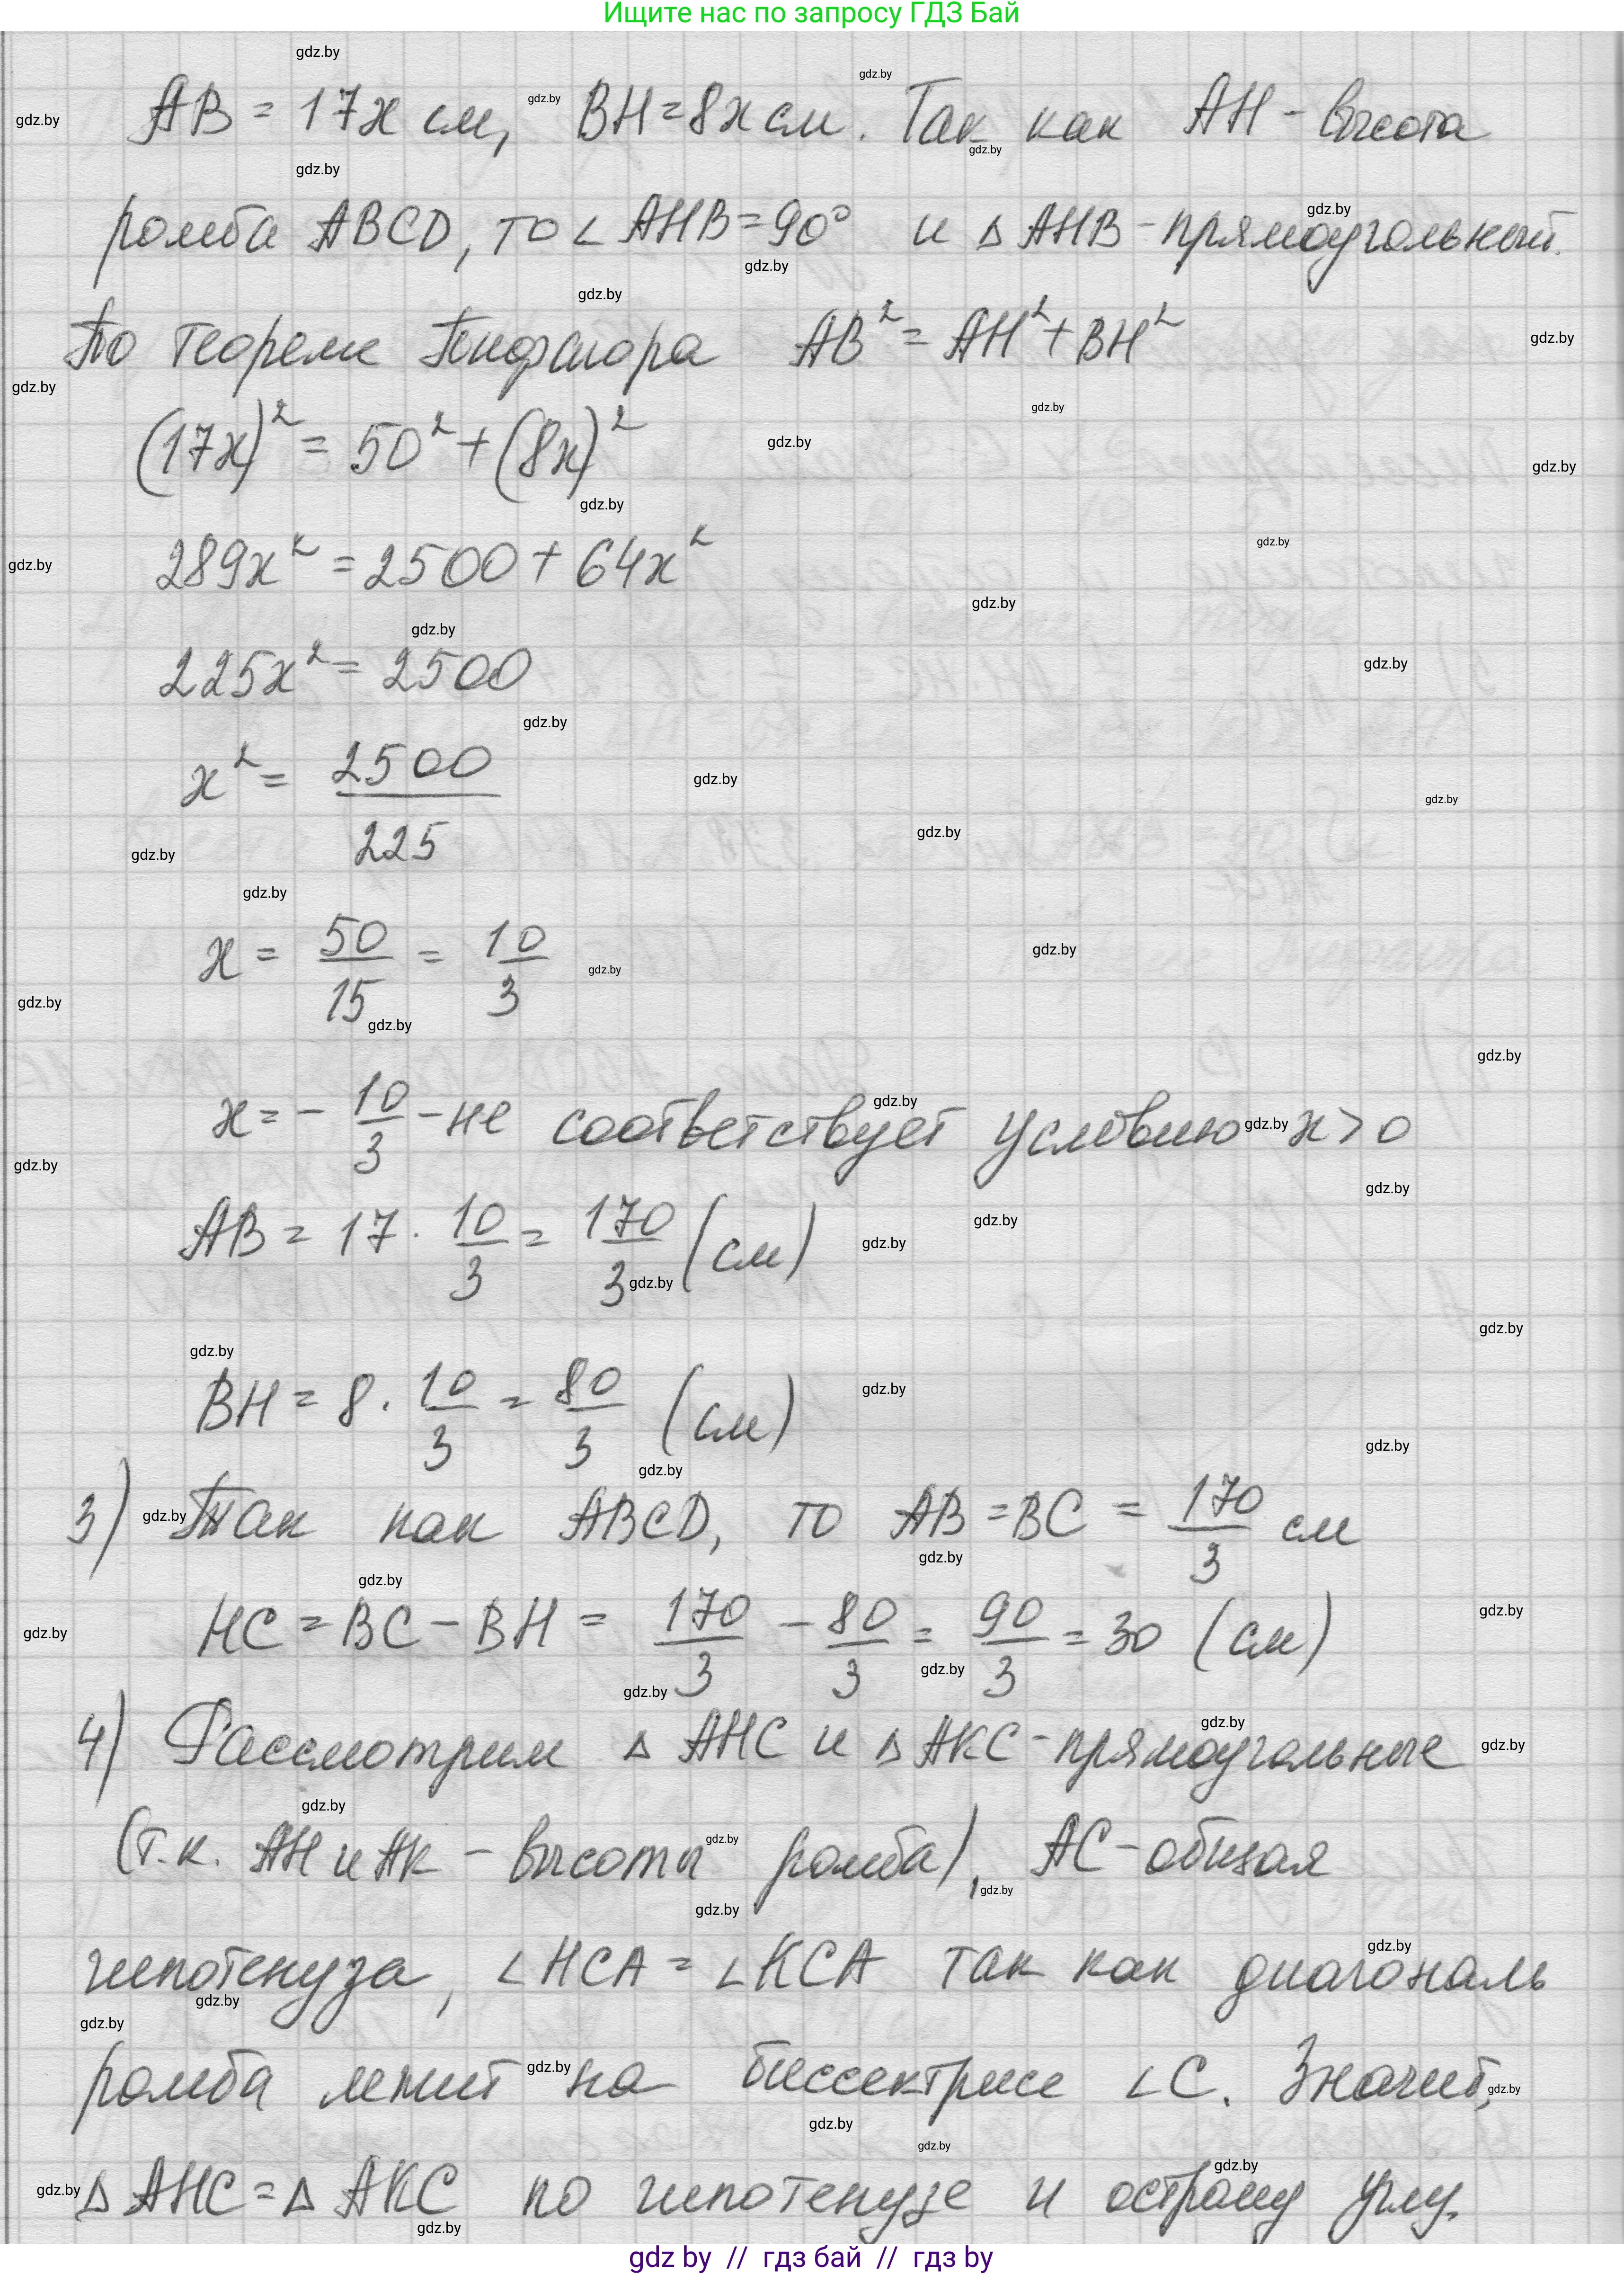 Ищите нас по запросу ГДЗ Бай
AB = 17x см, BH = 8x см. Так как AH - высота
ромба ABCD, то ∠AHB = 90° и △AHB - прямоугольный.
По теореме Пифагора AB² = AH² + BH²
(17x)² = 50² + (8x)²
289x² = 2500 + 64x²
225x² = 2500
x² = 2500/225
x = 50/15 = 10/3
x = - 10/3 - не соответствует условию x > 0
AB = 17 · 10/3 = 170/3 (см)
BH = 8 · 10/3 = 80/3 (см)
3) Так как ABCD, то AB = BC = 170/3 см
HC = BC - BH = 170/3 - 80/3 = 90/3 = 30 (см)
4) Рассмотрим △AHC и △AKC - прямоугольные
(т.к. AH и AK - высоты ромба), AC - общая
гипотенуза, ∠HCA = ∠KCA так как диагональ
ромба лежит на биссектрисе ∠C. Значит,
△AHC = △AKC по гипотенузе и острому углу.
gdz by // гдз бай // гдз by